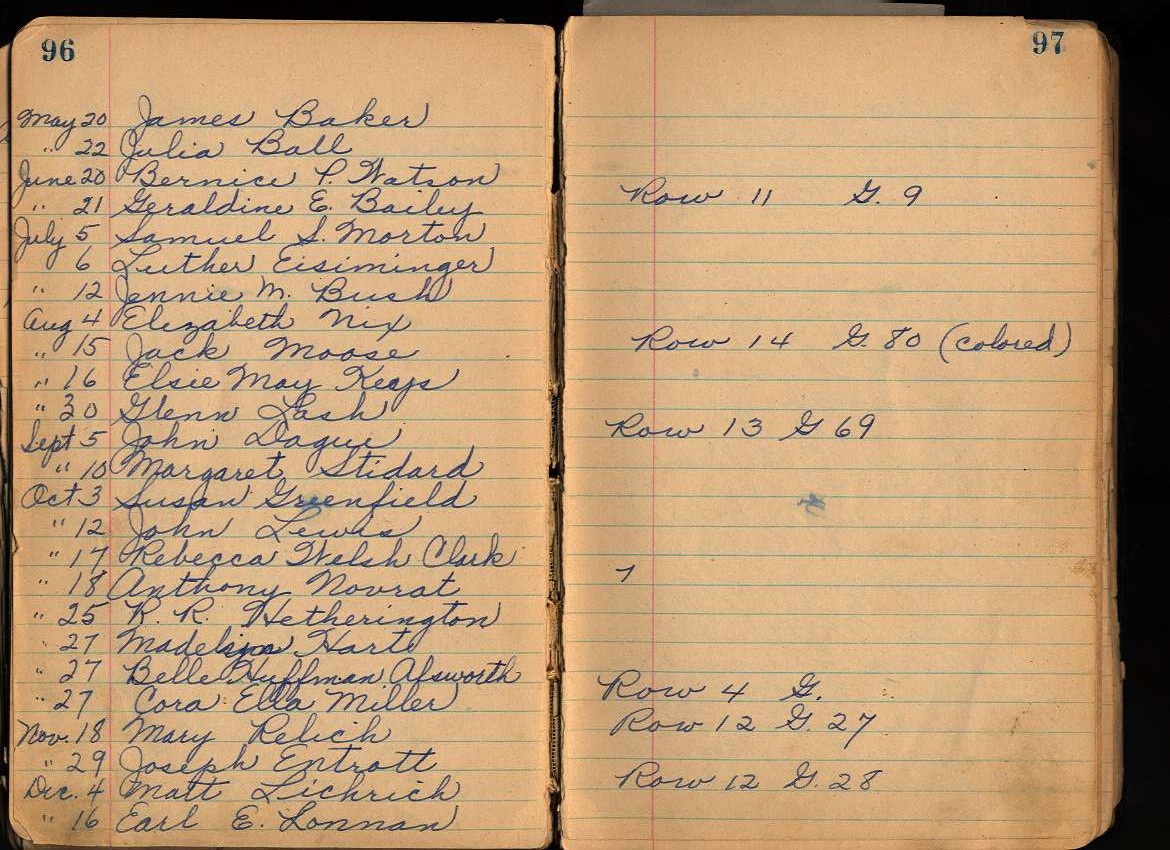 96
May 20 James Baker
" 22 Julia Ball
June 20 Bernice P. Watson
" 21 Geraldine E. Bailey
July 5 Samuel S. Morton
6 Luther Eisiminger
" 12 Jennie M. Bush
Aug 4 Elizabeth Nix
" 15 Jack Moose
" 16 Elsie May Keays
" 30 Glenn Lash
Sept 5 John Dague
" 10 Margaret Stidard
Oct 3 Susan Greenfield
" 12 John Lewis
" 17 Rebecca Welsh Clark
" 18 Anthony Novrat
" 25 R. R. Hetherington
" 27 Harte
" 27 Belle Huffman
" 27 Cora Ella Miller
Nov. 18 Mary Relich
" 29 Joseph Entrott
Dec. 4 Matt Lichrich
" 16 Earl E. Lonnan
97
Row 11 G. 9
Row 14 G. 80 (colored)
Row 13 G 69
7
Row 4 G.
Row 12 G. 27
Row 12 G. 28